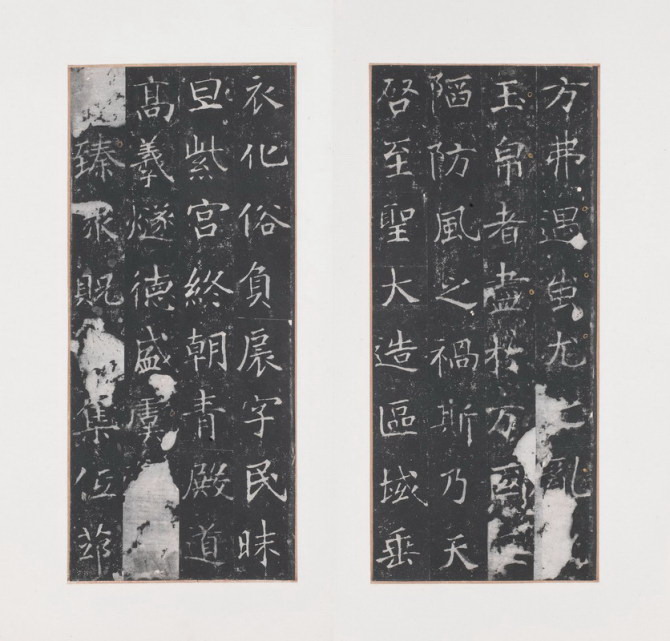 方弗遇蚩尤之亂
玉帛者盡於万國
陋防風之禍斯乃天
啓至聖大造區域垂
衣化俗負扆字民昧
旦紫宮終朝青殿道
高羲燧德盛虞
臻永既集伍茆